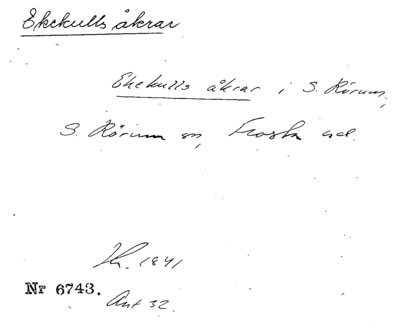 Ekekulls åkrar
Ekekulls åkrar i S. Rörum,
S. Rörum sn, Frosta hd.
Lk. 1841
Nr 6743.
Akt 32.